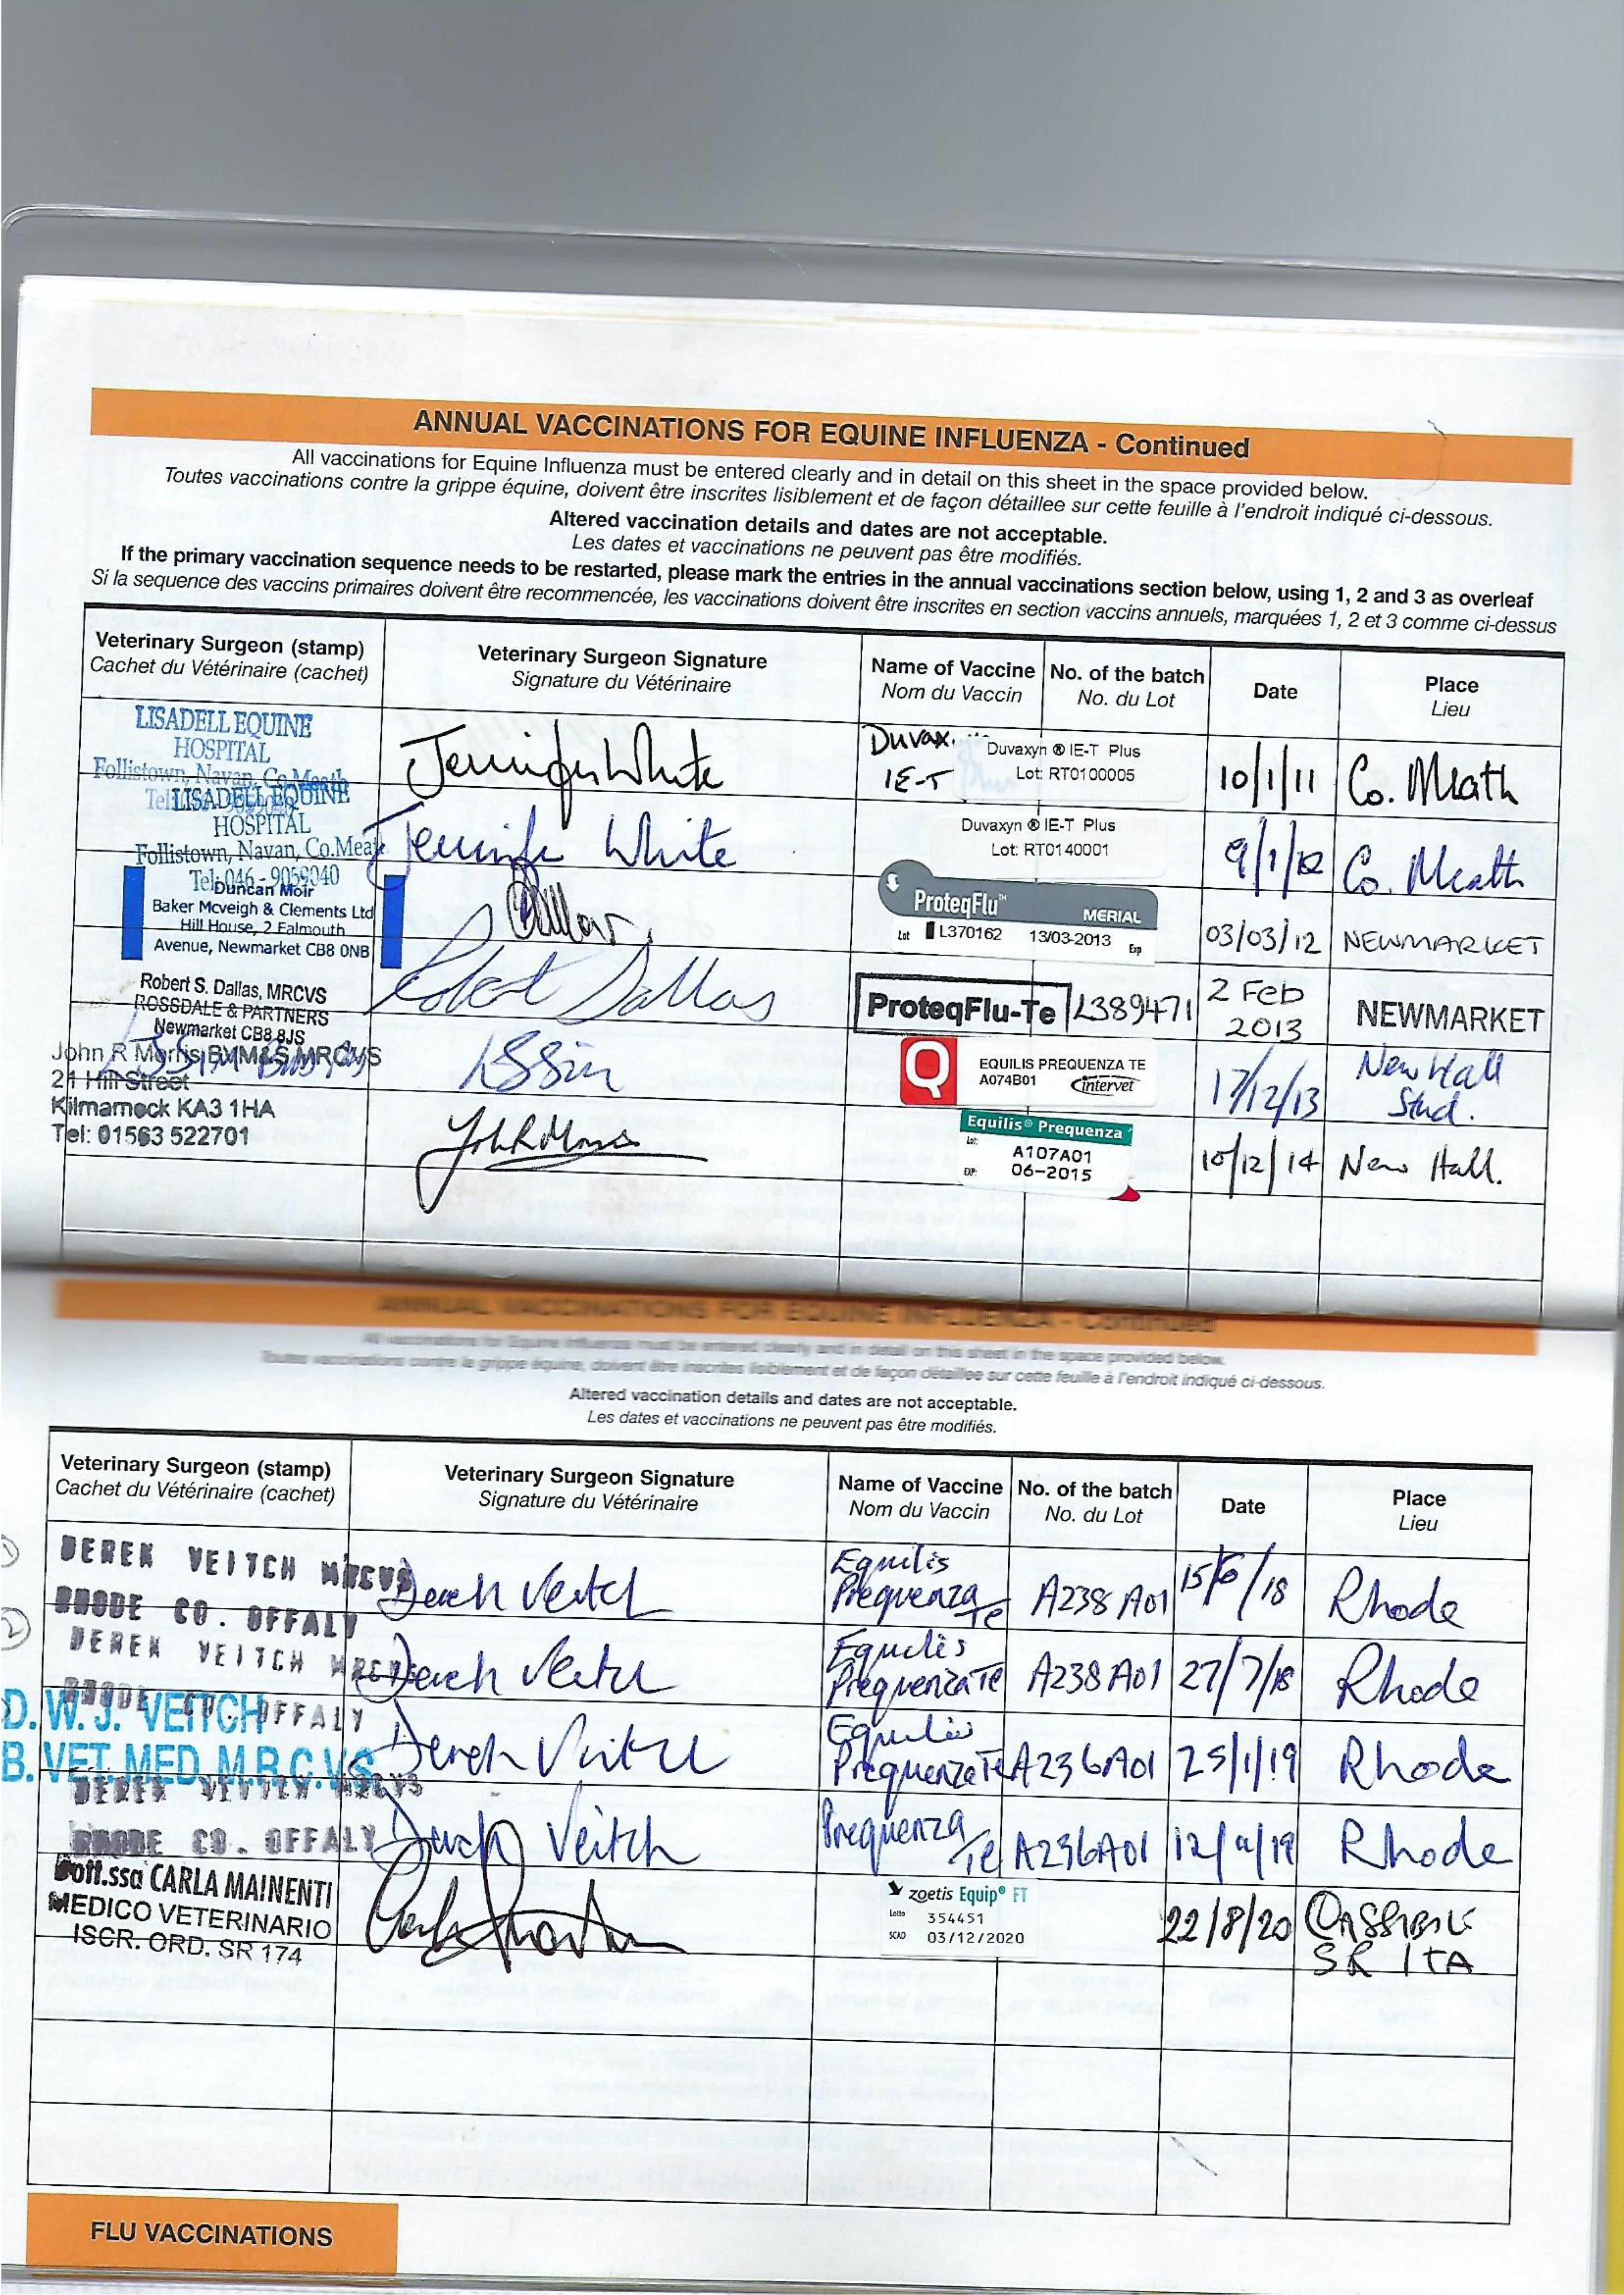 ANNUAL VACCINATIONS FOR EQUINE INFLUENZA - Continued
All vaccinations for Equine Influenza must be entered clearly and in detail on this sheet in the space provided below.
Toutes vaccinations contre la grippe équine, doivent être inscrites lisiblement et de façon détaillee sur cette feuille à l'endroit indiqué ci-dessous.
Altered vaccination details and dates are not acceptable.
Les dates et vaccinations ne peuvent pas être modifiés.
If the primary vaccination sequence needs to be restarted, please mark the entries in the annual vaccinations section below, using 1, 2 and 3 as overleaf
Si la sequence des vaccins primaires doivent être recommencée, les vaccinations doivent être inscrites en section vaccins annuels, marquées 1, 2 et 3 comme ci-dessus
Veterinary Surgeon (stamp) Veterinary Surgeon Signature Name of Vaccine No. of the batch Date Place
Cachet du Vétérinaire (cachet) Signature du Vétérinaire Nom du Vaccin No. du Lot Lieu
LISADELL EQUINE
HOSPITAL
Follistown, Navan, Co.Meath
Jennifer White Duvax. IE-T Duvaxyn ® IE-T Plus
Lot: RT0100005 10/1/11 Co. Meath
LISADELL EQUINE
HOSPITAL
Follistown, Navan, Co.Meath
Tel: 046 - 9059040
Jennifer White Duvaxyn ® IE-T Plus
Lot: RT0140001 9/1/12 Co. Meath
Duncan Moir
Baker Mcveigh & Clements Ltd
Hill House, 2 Falmouth
Avenue, Newmarket CB8 0NB
ProteqFlu™ MERIAL
Lot L370162 13/03-2013 Exp 03/03/12 NEWMARKET
Robert S. Dallas, MRCVS
ROSSDALE & PARTNERS
Newmarket CB8 8JS
Robert Dallas ProteqFlu-Te L389471 2 Feb 2013 NEWMARKET
EQUILIS PREQUENZA TE
A074B01 intervet 17/12/13 New Hall Stud.
John R Morris, BVM&S, MRCVS
21 Hill Street
Kilmarnock KA3 1HA
Tel: 01563 522701
Equilis® Prequenza
Lot: A107A01
EXP: 06-2015 10/12/14 New Hall.
ANNUAL VACCINATIONS FOR EQUINE INFLUENZA - Continued
All vaccinations for Equine Influenza must be entered clearly and in detail on this sheet in the space provided below.
Toutes vaccinations contre la grippe équine, doivent être inscrites lisiblement et de façon détaillee sur cette feuille à l'endroit indiqué ci-dessous.
Altered vaccination details and dates are not acceptable.
Les dates et vaccinations ne peuvent pas être modifiés.
Veterinary Surgeon (stamp) Veterinary Surgeon Signature Name of Vaccine No. of the batch Date Place
Cachet du Vétérinaire (cachet) Signature du Vétérinaire Nom du Vaccin No. du Lot Lieu
1 DEREK VEITCH MRCVS
RHODE CO. OFFALY
Derek Veitch Equilis Prequenza Te A238A01 15/6/18 Rhode
2 DEREK VEITCH MRCVS
RHODE CO. OFFALY
Derek Veitch Equilis Prequenza Te A238A01 27/7/18 Rhode
D. W. J. VEITCH
B. VET. MED. M.R.C.V.S.
Derek Veitch Equilis Prequenza Te A236A01 25/1/19 Rhode
DEREK VEITCH MRCVS
RHODE CO. OFFALY
Derek Veitch Prequenza Te A236A01 Rhode
Dott.ssa CARLA MAINENTI
MEDICO VETERINARIO
ISCR. ORD. SR 174
zoetis Equip® FT
Lotto 354451
SCAD 03/12/2020 22/8/20 CASSIBILE
SR ITA
FLU VACCINATIONS